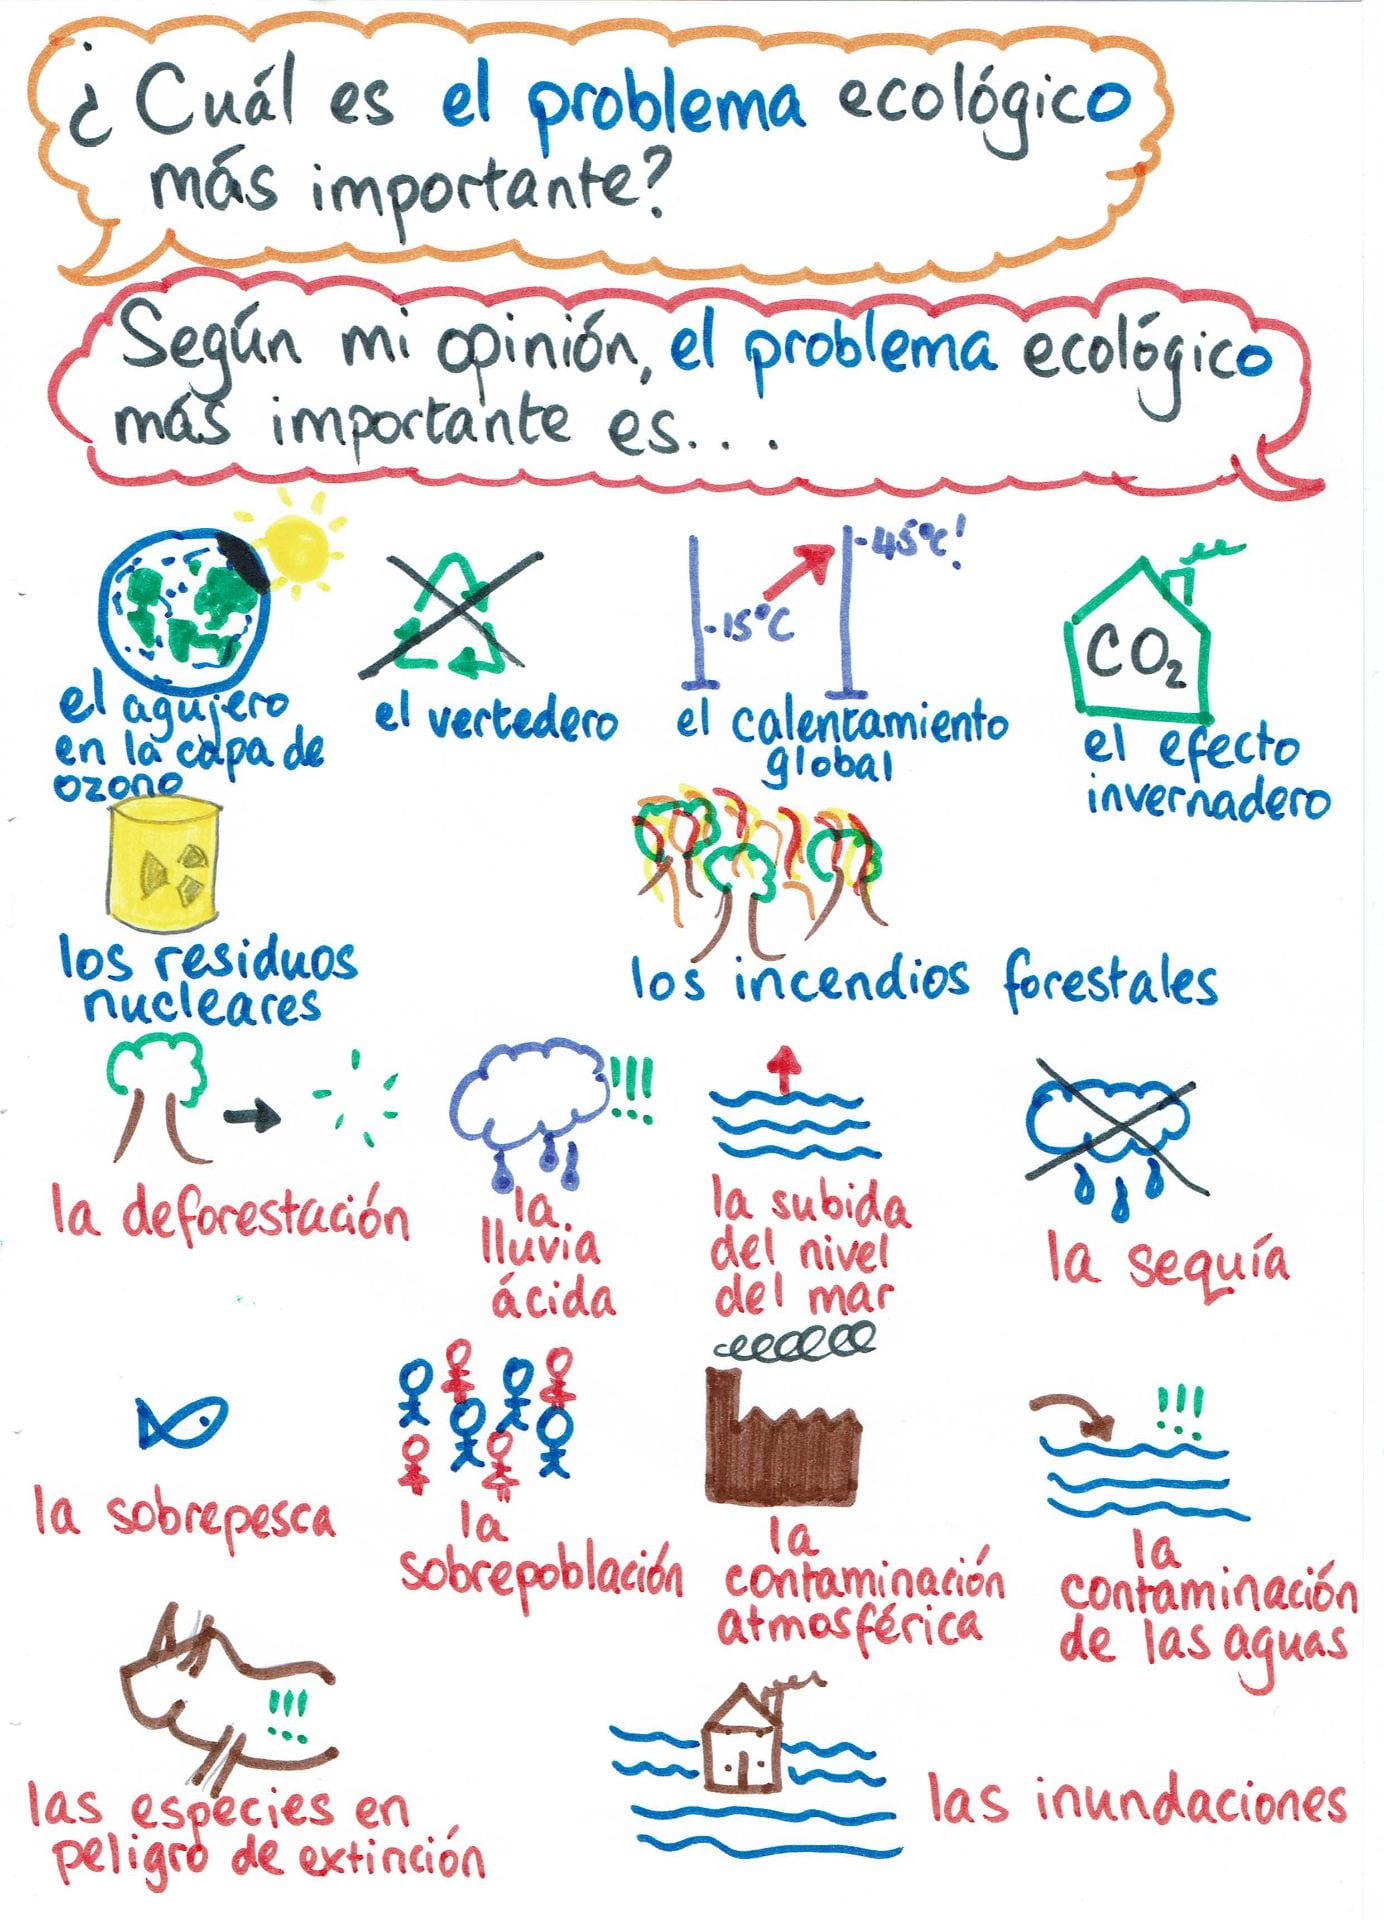 ¿Cuál es el problema ecológico
más importante?
Según mi opinión, el problema ecológico
más importante es...
-15°C
-45°C!
CO₂
el agujero
en la capa de
ozono
el vertedero
el calentamiento
global
el efecto
invernadero
los residuos
nucleares
los incendios forestales
!!!
la deforestación
la
lluvia
ácida
la subida
del nivel
del mar
la sequía
!!!
la sobrepesca
la
sobrepoblación
la
contaminación
atmosférica
la
contaminación
de las aguas
!!!
las especies en
peligro de extinción
las inundaciones